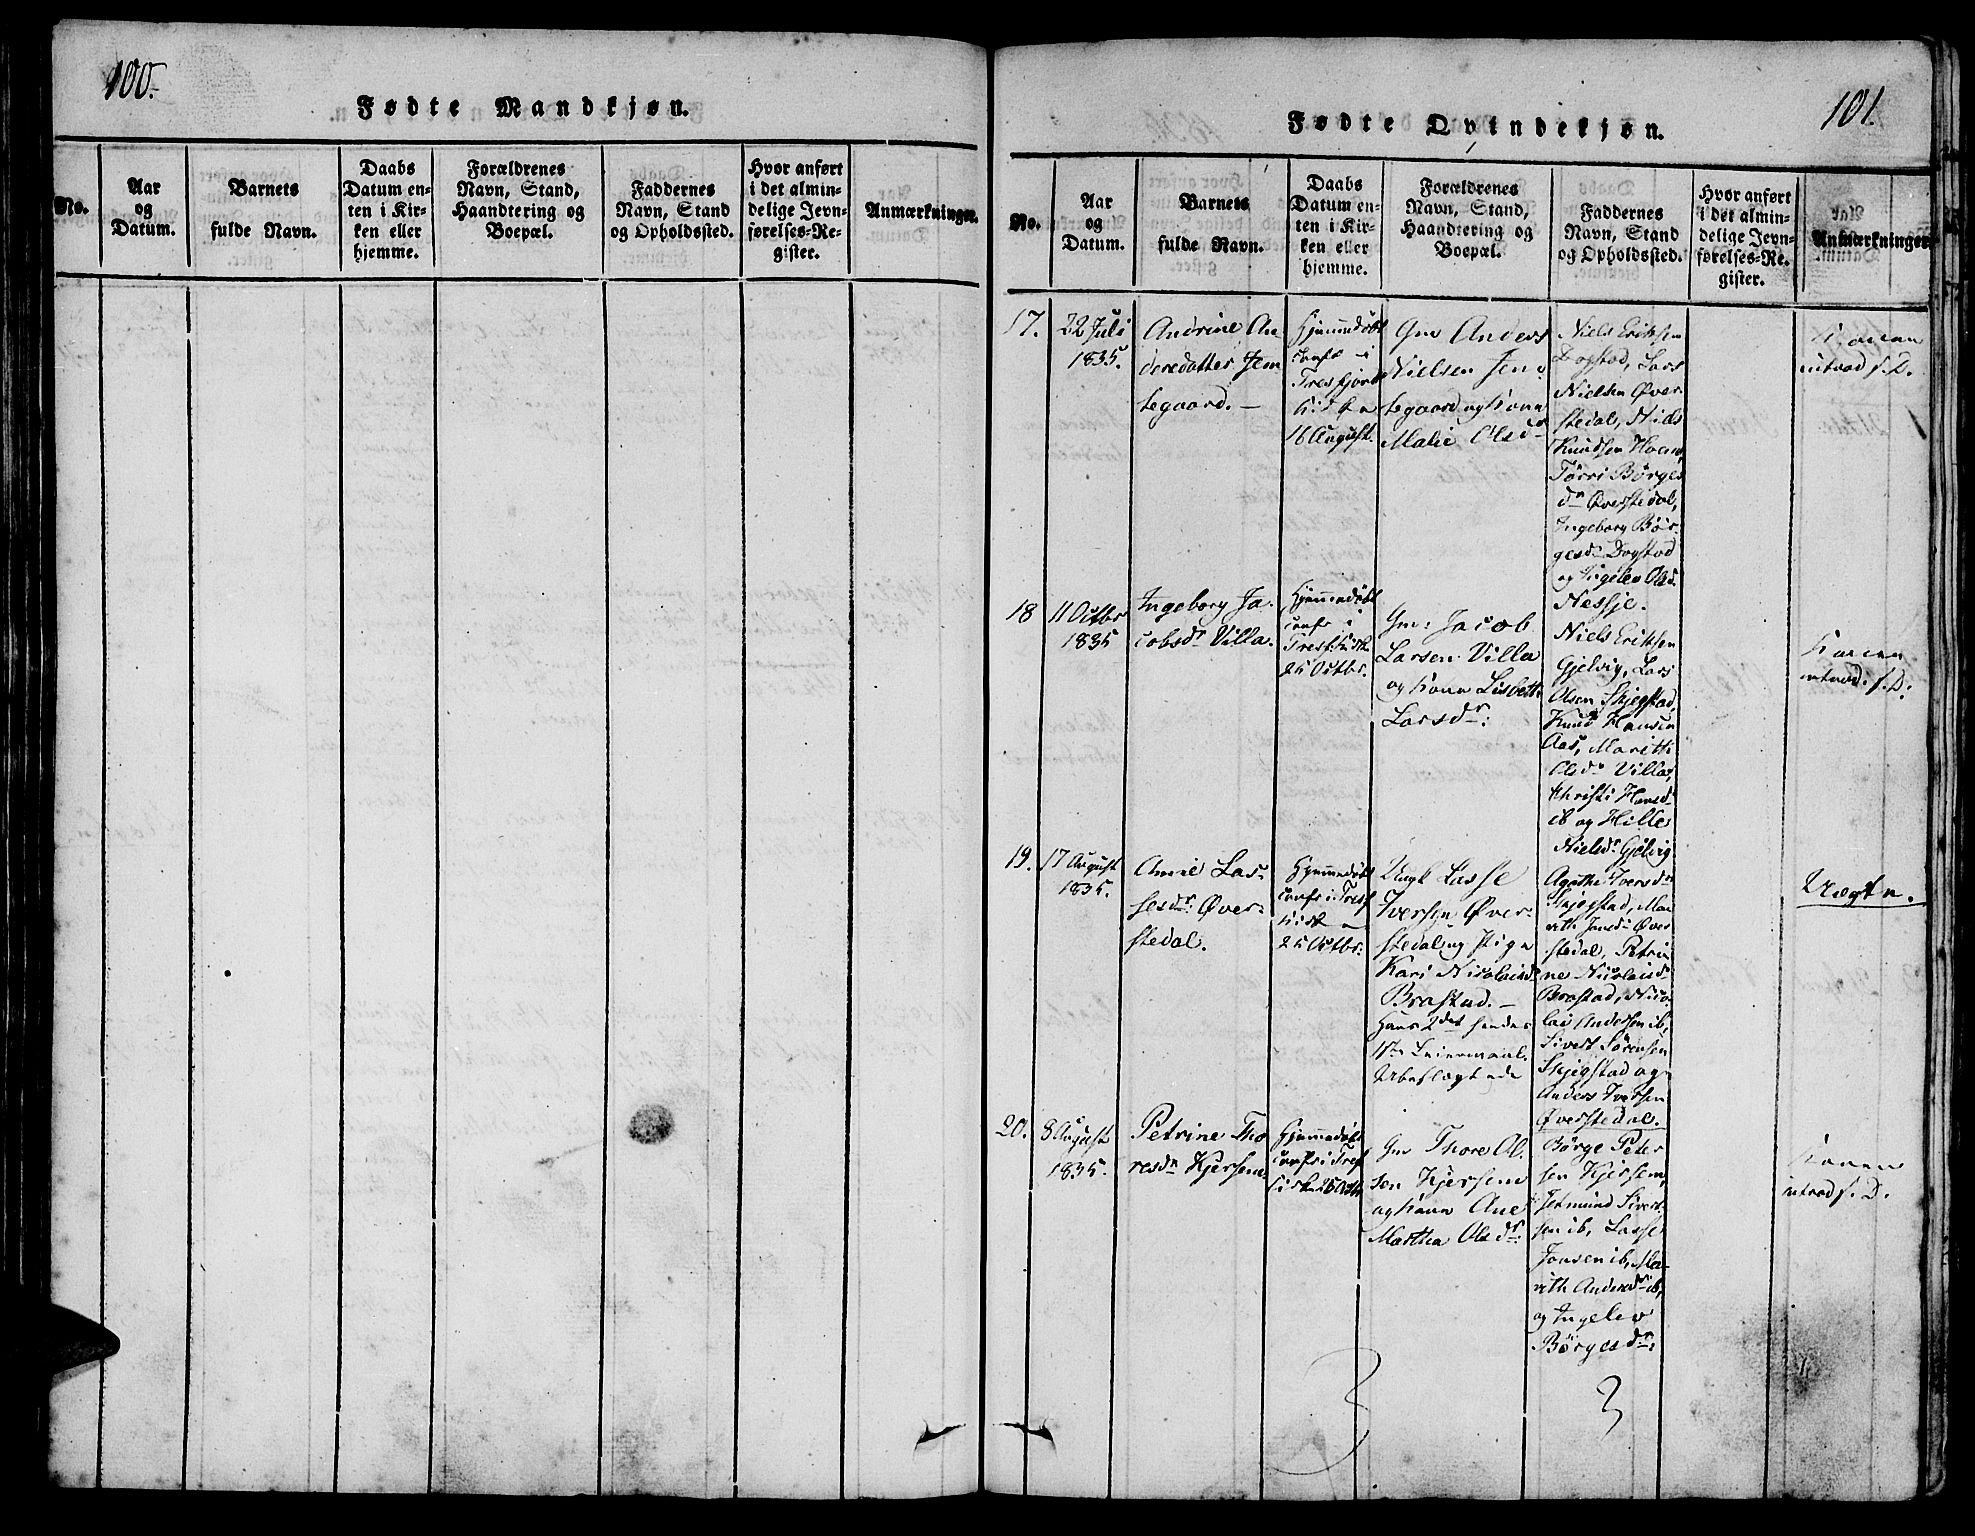 100.
Fødte Mandkjøn.
No.
Aar
og
Datum.
Barnets
fulde Navn.
Daabs
Datum en-
ten i Kir-
ken eller
hjemme.
Forældrenes
Navn, Stand,
Haandtering og
Boepæl.
Faddernes
Navn, Stand
og Opholdssted.
Hvor anført
i det almin-
delige Jevn-
førelses-Re-
gister.
Anmærkninger.
101.
Fødte Qvindekjøn.
No.
Aar
og
Datum.
Barnets
fulde Navn.
Daabs
Datum en-
ten i Kir-
ken eller
hjemme.
Forældrenes
Navn, Stand,
Haandtering og
Boepæl.
Faddernes
Navn, Stand
og Opholdssted.
Hvor anført
i det almin-
delige Jevn-
førelses-Re-
gister.
Anmærkninger
17.
22 Juli
1835.
Andrine An-
dersdatter Jem
tegaard.
Hjemmedøbt
conf: i
Tresfjord
Kirke
16 August.
Gm Anders
Nielsen Jem
tegaard og Kone
Malie Olsdr
Niels Eriksen
Dogstad, Lars
Nielsen Øver
stedal, Niels
Knudsen Hoem
Tørri Børges
dr Øverstedal,
Ingeborg Bør-
gesdr Dogstad
og Ingelev Olsd.
Nesje.
Konen
introd f. D.
18
11 Octbr
1835
Ingeborg Ja-
cobsdr Villa.
Hjemmedøbt
conf: i
Tresf: Kirke
25 Octbr.
Gm: Jacob
Larsen Villa
og Kone Lisbeth
Larsdr:
Niels Eriksen
Gjelvig, Lars
Olsen Skjegstad,
Knud Hansen
Aas, Marith
Olsdr Villa,
Christi Hansd.
ib og Hille
Nielsdr Gjelvig
Konen
introd. f. D:
19.
17 August
1835.
Anne Las-
sesdr: Øver-
stedal.
Hjemmedøbt
conf: i Tresf
Kirke
25 Octbr.
Ungk Lasse
Iversen Øver-
stedal og Pige
Kari Nicolaisd
Brastad.
Hans 2det hendes
1ste Leiermaal.
Ubeslægtede
Agathe Iversdr
Skjegstad, Ma
rith Jonsdr Øver
stedal, Petri
ne Nicolaisdr
Brastad, Nico
lai Andersen ib,
Sivert Sørensen
Skjegstad og
Anders Iversen
Øverstedal.
Uægte.
20.
8 August
1835.
Petrine Tho
resdr Kjersem
Hjemmedøbt
conf: i Tresf
Kirke 25 Octbr
Gm Thore Ol
sen Kjersem
og Kone Ane
Martha Olsdr:
Børge Peter
sen Kjersem,
Jetmund Sivert
sen ib, Lasse
Jonsen ib, Ma-
rith Andersdr ib,
og Ingelev
Børgesdr:
Konen
introd f. D.